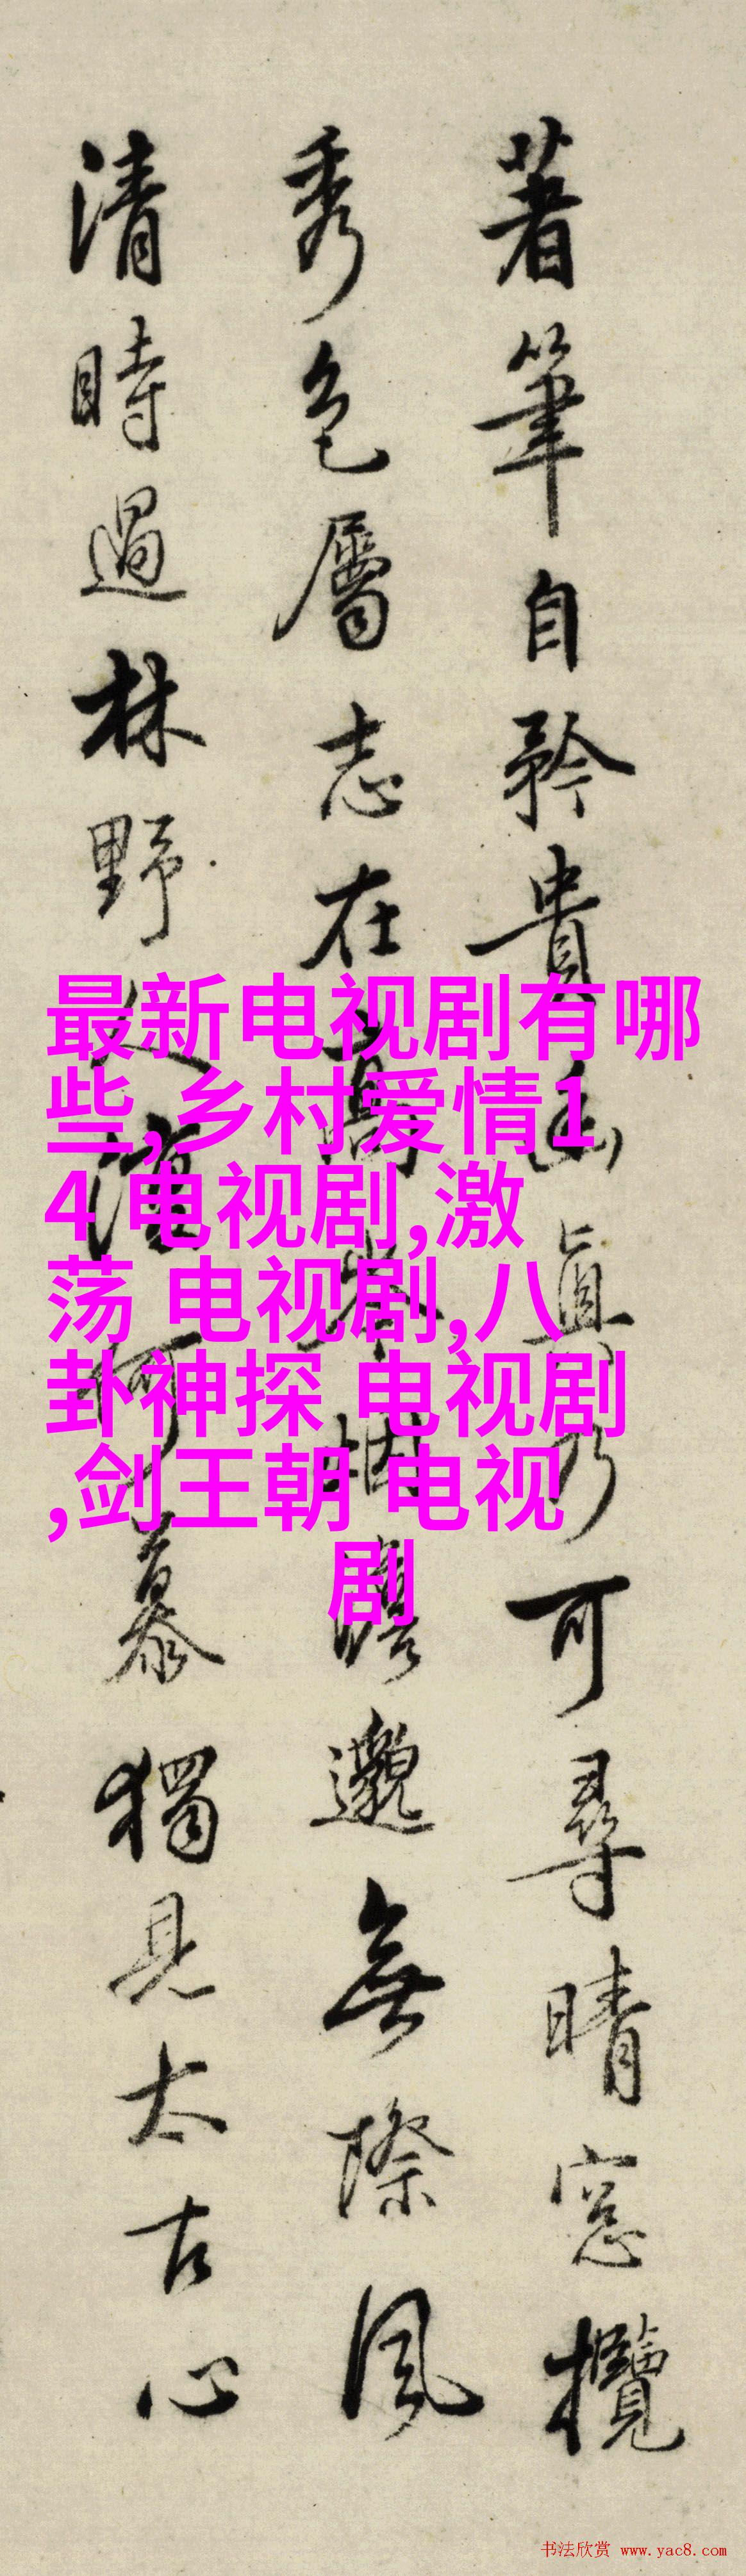 著筆自矜貴幽眞乃可尋晴窓攬
秀色屬志在高岑烟靄邈無際風
清時過林野人澹何慕獨見太古心
最新电视剧有哪
些,乡村爱情1
4 电视剧,激
荡 电视剧,八
卦神探 电视剧
,剑王朝 电视
剧
书法欣赏 www.yac8.com